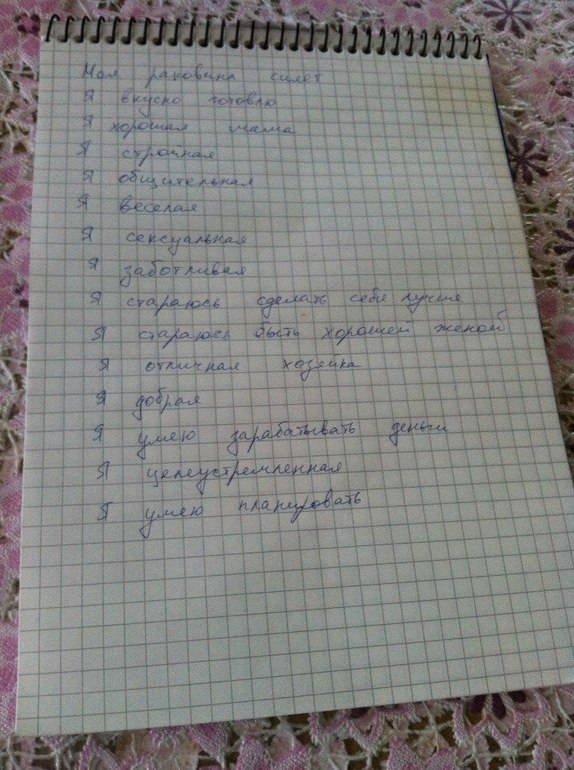 Моя раковина сияет
Я вкусно готовлю
Я хорошая мама
Я стройная
Я общительная
Я веселая
Я сексуальная
Я заботливая
Я стараюсь сделать себя лучше
Я стараюсь быть хорошей женой
Я отличная хозяйка
Я добрая
Я умею зарабатывать деньги
Я целеустремленная
Я умею планировать